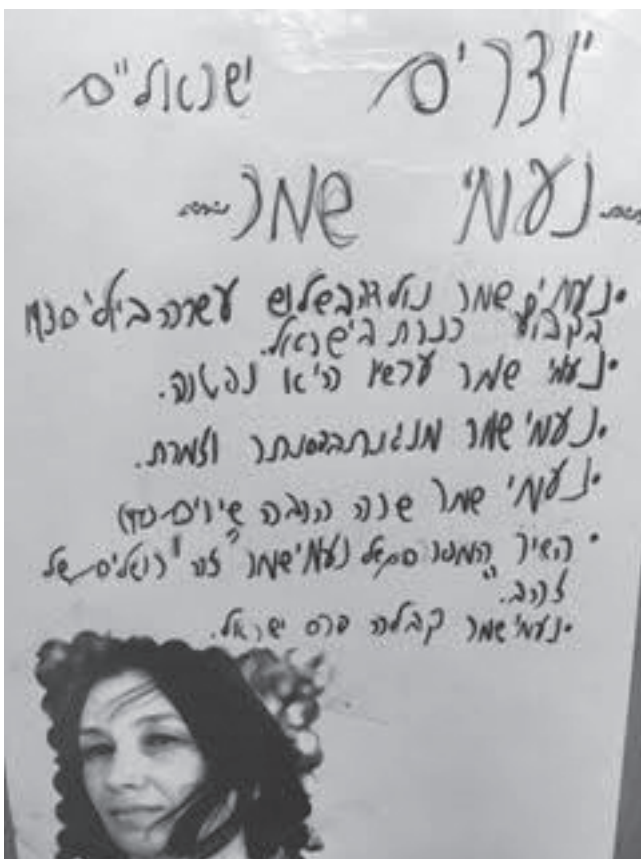 יוצרים ישראליים
נעמי שמר
•נעמי שמר נולדה בשלוש עשרה
בקבוץ כנרת בישראל.
•נעמי שמר היא נפטרה.
•נעמי שמר מנגנת בפסנתר וזמרת.
•נעמי שמר שרה הרבה שירים
• השיר המפורסם של נעמי שמר זה "ירושלים של
זהב".
•נעמי שמר קבלה פרס ישראל.